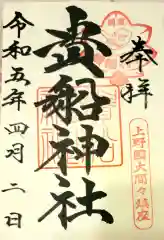 奉拝
上野國大間々鎮座
貴船神社
令和五年四月二日